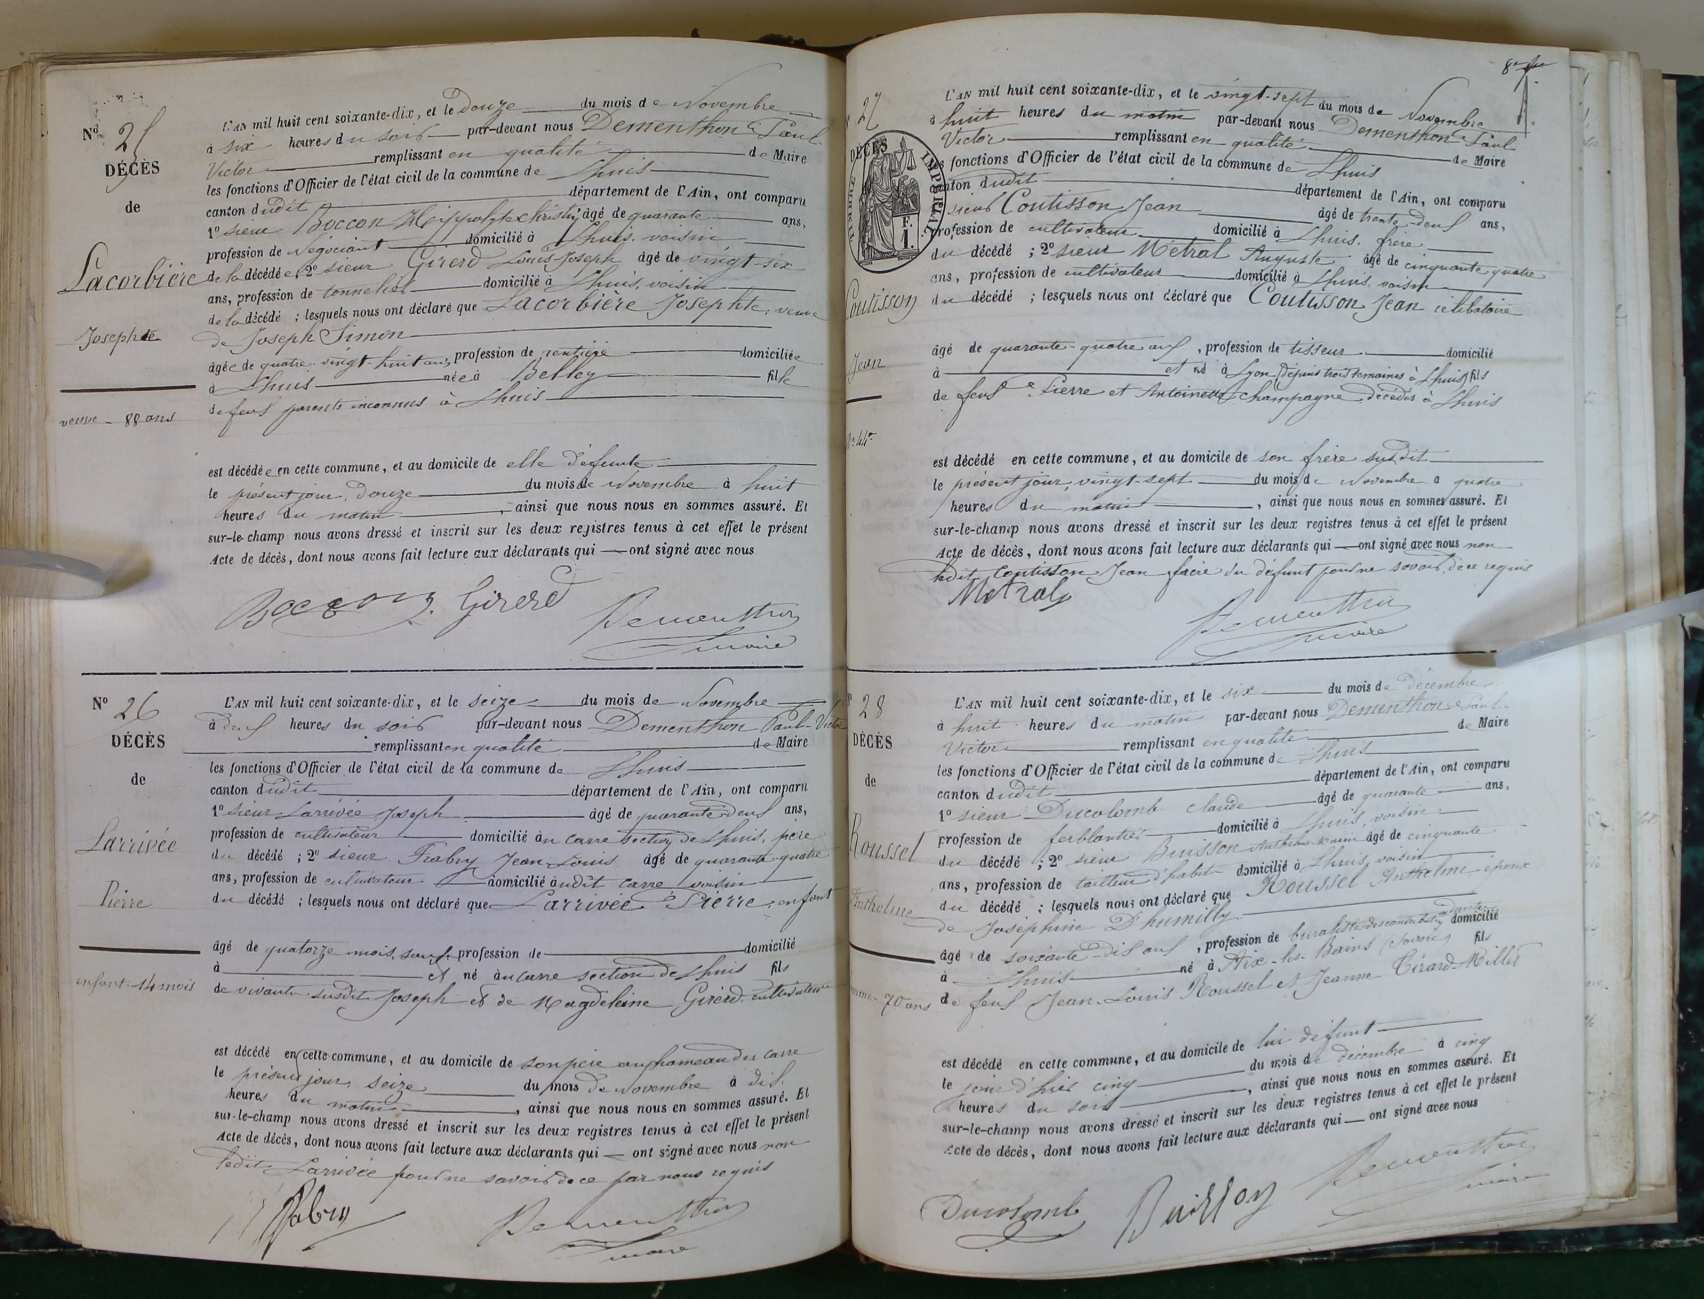 Nº 25
DÉCÈS
de
Lacorbière
Josephte
veuve - 88 ans
L'AN mil huit cent soixante-dix, et le douze du mois de Novembre
à six heures du soir par-devant nous Dementhon Paul
Victor remplissant en qualité de Maire
les fonctions d'Officier de l'état civil de la commune de Lhuis
canton dudit département de l'Ain, ont comparu
1º sieur Boccon âgé de quarante ans,
profession de négociant domicilié à Lhuis, voisin
de la décédée ; 2º sieur Girerd Louis Joseph âgé de vingt-six
ans, profession de tonnelier domicilié à Lhuis, voisin
de la décédé ; lesquels nous ont déclaré que Lacorbière Josephte, veuve
de Joseph Simon
âgée de quatre-vingt-huit ans, profession de rentière domiciliée
à Lhuis née à Belley fille
de feus parents inconnus à Lhuis
est décédée en cette commune, et au domicile de elle défunte
le présent jour, douze du mois de Novembre à huit
heures du matin, ainsi que nous nous en sommes assuré. Et
sur-le-champ nous avons dressé et inscrit sur les deux registres tenus à cet effet le présent
Acte de décès, dont nous avons fait lecture aux déclarants qui — ont signé avec nous
Boccon Girerd Dementhon
maire
Nº 26
DÉCÈS
de
Larrivée
Pierre
enfant - 14 mois
L'AN mil huit cent soixante-dix, et le seize du mois de Novembre
à deux heures du soir par-devant nous Dementhon Paul-Victor
remplissant en qualité de Maire
les fonctions d'Officier de l'état civil de la commune de Lhuis
canton dudit département de l'Ain, ont comparu
1º sieur Larrivée Joseph âgé de quarante-deux ans,
profession de cultivateur domicilié à un carre section de Lhuis, père
du décédé ; 2º sieur Frabry Jean-Louis âgé de quarante-quatre
ans, profession de cultivateur domicilié audit carre voisin
du décédé ; lesquels nous ont déclaré que Larrivée Pierre, enfant
âgé de quatorze mois, sans profession de domicilié
à et né au carre section de Lhuis fils
de vivants susdit Joseph et de Magdeleine Girerd cultivateurs
est décédé en cette commune, et au domicile de son père au hameau du carre
le présent jour, seize du mois de Novembre à dix
heures du matin, ainsi que nous nous en sommes assuré. Et
sur-le-champ nous avons dressé et inscrit sur les deux registres tenus à cet effet le présent
Acte de décès, dont nous avons fait lecture aux déclarants qui — ont signé avec nous non
ledit Larrivée pour ne savoir de ce par nous requis
Dementhon
maire
27
DÉCÈS
TIMBRE IMPÉRIAL
F. 1.
Coutisson
Jean
L'AN mil huit cent soixante-dix, et le vingt-sept du mois de Novembre
à huit heures du matin par-devant nous Dementhon Paul
Victor remplissant en qualité de Maire
les fonctions d'Officier de l'état civil de la commune de Lhuis
canton dudit département de l'Ain, ont comparu
sieur Coutisson Jean âgé de trente-deux ans,
profession de cultivateur domicilié à Lhuis, frère
du décédé ; 2º sieur Métral Auguste âgé de cinquante quatre
ans, profession de cultivateur domicilié à Lhuis, voisin
du décédé ; lesquels nous ont déclaré que Coutisson Jean célibataire
âgé de quarante-quatre ans, profession de tisseur domicilié
à et né à Lyon (depuis trois semaines à Lhuis) fils
de feus Pierre et Antoinette Champagne décédés à Lhuis
est décédé en cette commune, et au domicile de son frère susdit
le présent jour, vingt-sept du mois de Novembre à quatre
heures du matin, ainsi que nous nous en sommes assuré. Et
sur-le-champ nous avons dressé et inscrit sur les deux registres tenus à cet effet le présent
Acte de décès, dont nous avons fait lecture aux déclarants qui — ont signé avec nous non
ledit Coutisson Jean frère du défunt pour ne savoir, de ce requis
Métral Dementhon
maire
28
DÉCÈS
de
Roussel
Anthelme
70 ans
L'AN mil huit cent soixante-dix, et le six du mois de décembre
à huit heures du matin par-devant nous Dementhon Paul
Victor remplissant en qualité de Maire
les fonctions d'Officier de l'état civil de la commune de Lhuis
canton dudit département de l'Ain, ont comparu
1º sieur Ducolomb Claude âgé de quarante ans,
profession de ferblantier domicilié à Lhuis, voisin
du décédé ; 2º sieur Buisson âgé de cinquante
ans, profession de tailleur d'habits domicilié à Lhuis, voisin
du décédé ; lesquels nous ont déclaré que Roussel Anthelme époux
de Joséphine D'humilly
âgé de soixante-dix ans, profession de buraliste domicilié
à Lhuis né à Aix-les-Bains (Savoie) fils
de feus Jean-Louis Roussel et Jeanne Girard-Millet
est décédé en cette commune, et au domicile de lui défunt
le jour d'hier cinq du mois de décembre à cinq
heures du soir, ainsi que nous nous en sommes assuré. Et
sur-le-champ nous avons dressé et inscrit sur les deux registres tenus à cet effet le présent
Acte de décès, dont nous avons fait lecture aux déclarants qui — ont signé avec nous
Ducolomb Buisson Dementhon
maire